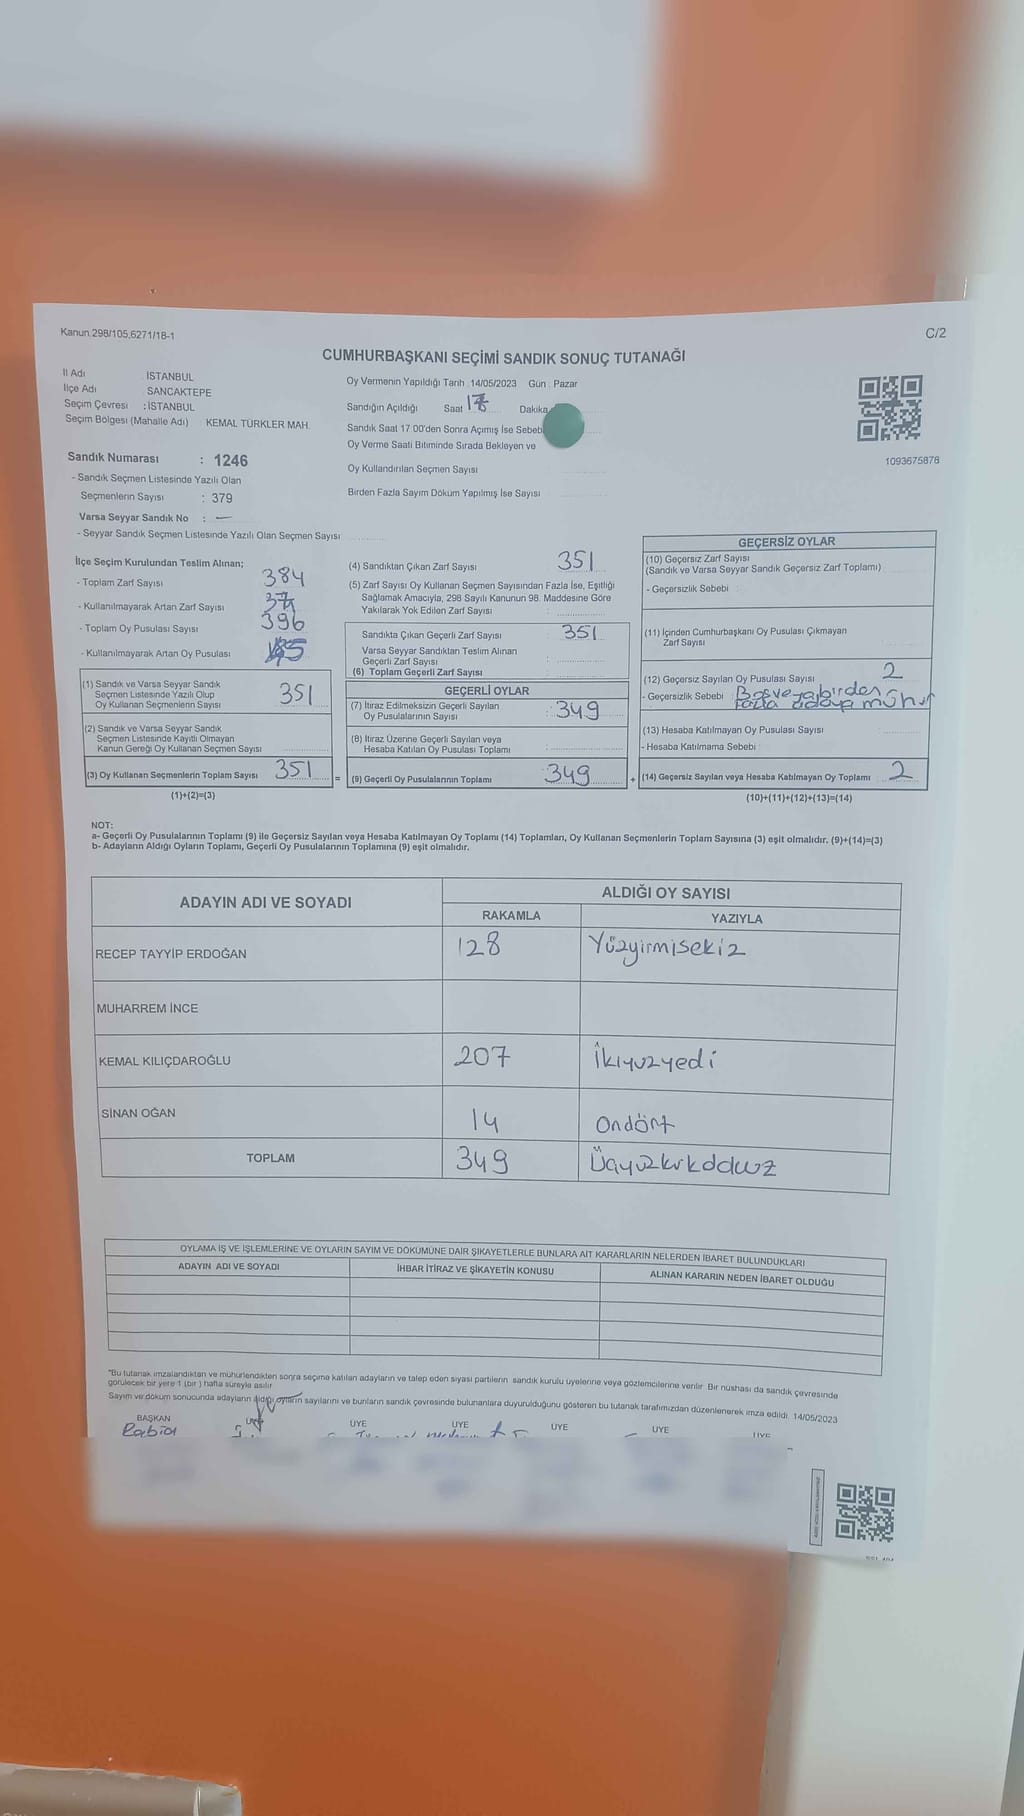 Kanun 298/105,6271/18-1
C/2
CUMHURBAŞKANI SEÇİMİ SANDIK SONUÇ TUTANAĞI
İl Adı İSTANBUL
İlçe Adı SANCAKTEPE
Seçim Çevresi :İSTANBUL
Seçim Bölgesi (Mahalle Adı) KEMAL TÜRKLER MAH.
Sandık Numarası : 1246
- Sandık Seçmen Listesinde Yazılı Olan
Seçmenlerin Sayısı : 379
Varsa Seyyar Sandık No : —
- Seyyar Sandık Seçmen Listesinde Yazılı Olan Seçmen Sayısı
Oy Vermenin Yapıldığı Tarih 14/05/2023 Gün Pazar
Sandığın Açıldığı Saat Dakika
Sandık Saat 17.00'den Sonra Açılmış İse Sebebi
Oy Verme Saati Bitiminde Sırada Bekleyen ve
Oy Kullandırılan Seçmen Sayısı
Birden Fazla Sayım Döküm Yapılmış İse Sayısı
1093675878
İlçe Seçim Kurulundan Teslim Alınan;
- Toplam Zarf Sayısı 384
- Kullanılmayarak Artan Zarf Sayısı
- Toplam Oy Pusulası Sayısı 396
- Kullanılmayarak Artan Oy Pusulası
(1) Sandık ve Varsa Seyyar Sandık
Seçmen Listesinde Yazılı Olup
Oy Kullanan Seçmenlerin Sayısı 351
(2) Sandık ve Varsa Seyyar Sandık
Seçmen Listesinde Kayıtlı Olmayan
Kanun Gereği Oy Kullanan Seçmen Sayısı
(3) Oy Kullanan Seçmenlerin Toplam Sayısı 351 =
(1)+(2)=(3)
(4) Sandıktan Çıkan Zarf Sayısı 351
(5) Zarf Sayısı Oy Kullanan Seçmen Sayısından Fazla İse, Eşitliği
Sağlamak Amacıyla, 298 Sayılı Kanunun 98. Maddesine Göre
Yakılarak Yok Edilen Zarf Sayısı :
Sandıkta Çıkan Geçerli Zarf Sayısı : 351
Varsa Seyyar Sandıktan Teslim Alınan
Geçerli Zarf Sayısı :
(6) Toplam Geçerli Zarf Sayısı
GEÇERLİ OYLAR
(7) İtiraz Edilmeksizin Geçerli Sayılan
Oy Pusulalarının Sayısı : 349
(8) İtiraz Üzerine Geçerli Sayılan veya
Hesaba Katılan Oy Pusulası Toplamı :
(9) Geçerli Oy Pusulalarının Toplamı 349 +
GEÇERSİZ OYLAR
(10) Geçersiz Zarf Sayısı
(Sandık ve Varsa Seyyar Sandık Geçersiz Zarf Toplamı)
- Geçersizlik Sebebi :
(11) İçinden Cumhurbaşkanı Oy Pusulası Çıkmayan
Zarf Sayısı
(12) Geçersiz Sayılan Oy Pusulası Sayısı 2
- Geçersizlik Sebebi Boş veya birden
fazla adaya mühür
(13) Hesaba Katılmayan Oy Pusulası Sayısı
- Hesaba Katılmama Sebebi
(14) Geçersiz Sayılan veya Hesaba Katılmayan Oy Toplamı 2
(10)+(11)+(12)+(13)=(14)
NOT:
a- Geçerli Oy Pusulalarının Toplamı (9) ile Geçersiz Sayılan veya Hesaba Katılmayan Oy Toplamı (14) Toplamları, Oy Kullanan Seçmenlerin Toplam Sayısına (3) eşit olmalıdır. (9)+(14)=(3)
b- Adayların Aldığı Oyların Toplamı, Geçerli Oy Pusulalarının Toplamına (9) eşit olmalıdır.
ADAYIN ADI VE SOYADI ALDIĞI OY SAYISI
RAKAMLA YAZIYLA
RECEP TAYYİP ERDOĞAN 128 Yüzyirmisekiz
MUHARREM İNCE
KEMAL KILIÇDAROĞLU 207 İkiyüzyedi
SİNAN OĞAN 14 Ondört
TOPLAM 349
OYLAMA İŞ VE İŞLEMLERİNE VE OYLARIN SAYIM VE DÖKÜMÜNE DAİR ŞİKAYETLERLE BUNLARA AİT KARARLARIN NELERDEN İBARET BULUNDUKLARI
ADAYIN ADI VE SOYADI İHBAR İTİRAZ VE ŞİKAYETİN KONUSU ALINAN KARARIN NEDEN İBARET OLDUĞU
"Bu tutanak imzalandıktan ve mühürlendikten sonra seçime katılan adayların ve talep eden siyasi partilerin sandık kurulu üyelerine veya gözlemcilerine verilir Bir nüshası da sandık çevresinde
görülecek bir yere 1 (bir ) hafta süreyle asılır
Sayım ve döküm sonucunda adayların aldığı oyların sayılarını ve bunların sandık çevresinde bulunanlara duyurulduğunu gösteren bu tutanak tarafımızdan düzenlenerek imza edildi. 14/05/2023
BAŞKAN ÜYE ÜYE ÜYE ÜYE ÜYE ÜYE
Rabia